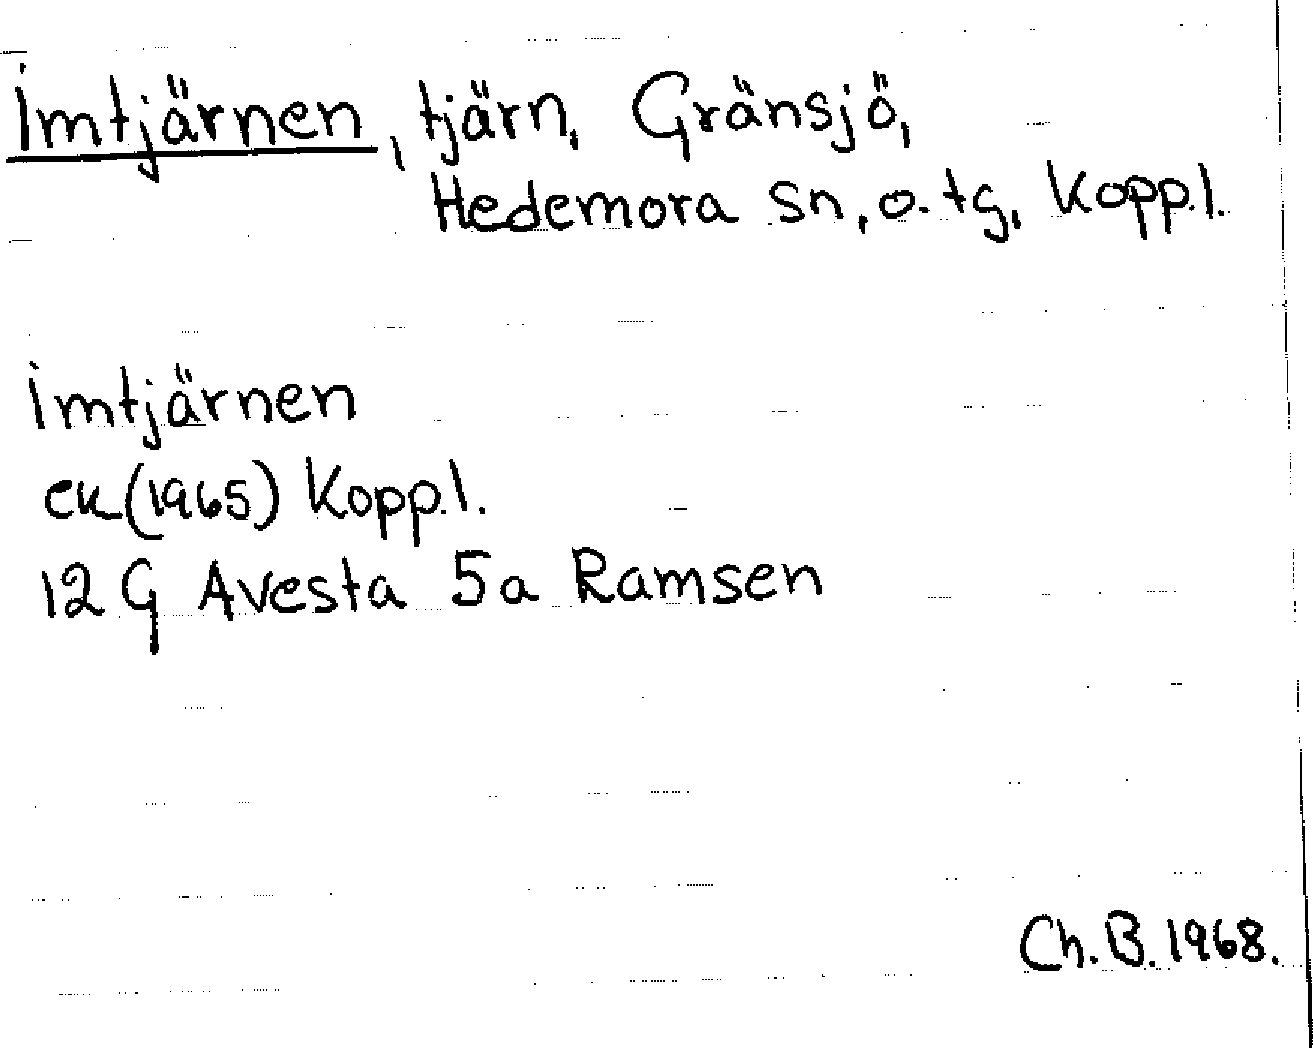 Imtjärnen, tjärn, Gränsjö,
Hedemora sn, o. tg, Koppl.
Imtjärnen
ek (1965) Koppl.
12 G Avesta 5a Ramsen
Ch. B. 1968.